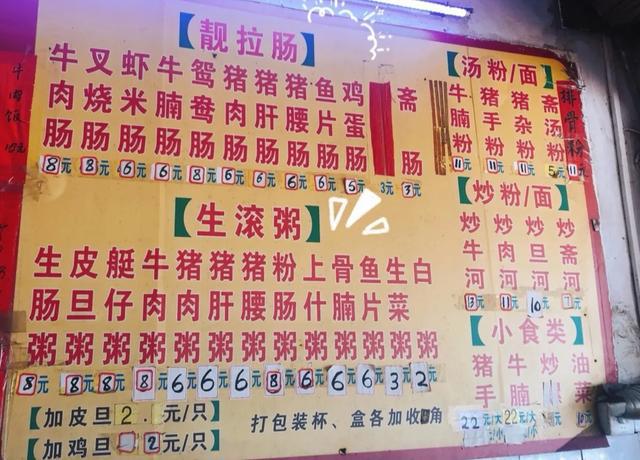 牛肉饭
【靓拉肠】
牛肉肠 8元
叉烧肠 8元
虾米肠 6元
牛腩肠 6元
鸳鸯肠 8元
猪肉肠 6元
猪肝肠 6元
猪腰肠 6元
鱼片肠 6元
鸡蛋肠 5元
3元
斋肠 3元
【生滚粥】
生肠粥 8元
皮旦粥 8元
艇仔粥 8元
牛肉粥 8元
猪肉粥 6元
猪肝粥 6元
猪腰粥 6元
粉肠粥 8元
上什粥 6元
骨腩粥 6元
鱼片粥 6元
生菜粥 3元
白粥 2元
【加皮旦 2.元/只】
【加鸡旦 2元/只】
打包装杯、盒各加收角
【汤粉/面】
牛腩粉 11元
猪手粉 11元
猪杂粉 11元
斋汤粉 5元
排骨粉 11元
【炒粉/面】
炒牛河 13元
炒肉河 11元
炒旦河 10元
炒斋河 7元
【小食类】
猪手 22元/大 /小
牛腩 22元/大 /小
炒
油菜 10元